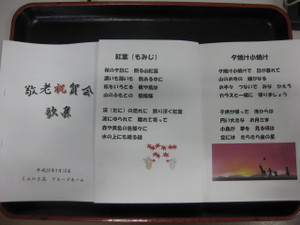 敬老祝賀会
歌集
紅葉（もみじ）
秋の夕日に 照る山紅葉
濃いも薄いも 数ある中に
松をいろどる 楓や蔦は
山のふもとの 裾模様
渓（たに）の流れに 散り浮く紅葉
波にゆられて 離れて寄って
赤や黄色の色様々に
水の上にも織る錦
夕焼け小焼け
夕焼け小焼けで 日が暮れて
山のお寺の 鐘がなる
お手々 つないで みな かえろ
カラスと一緒に 帰りましょう
子供が帰った 後からは
円い大きな お月さま
小鳥が 夢を 見る頃は
空には きらきら金の星